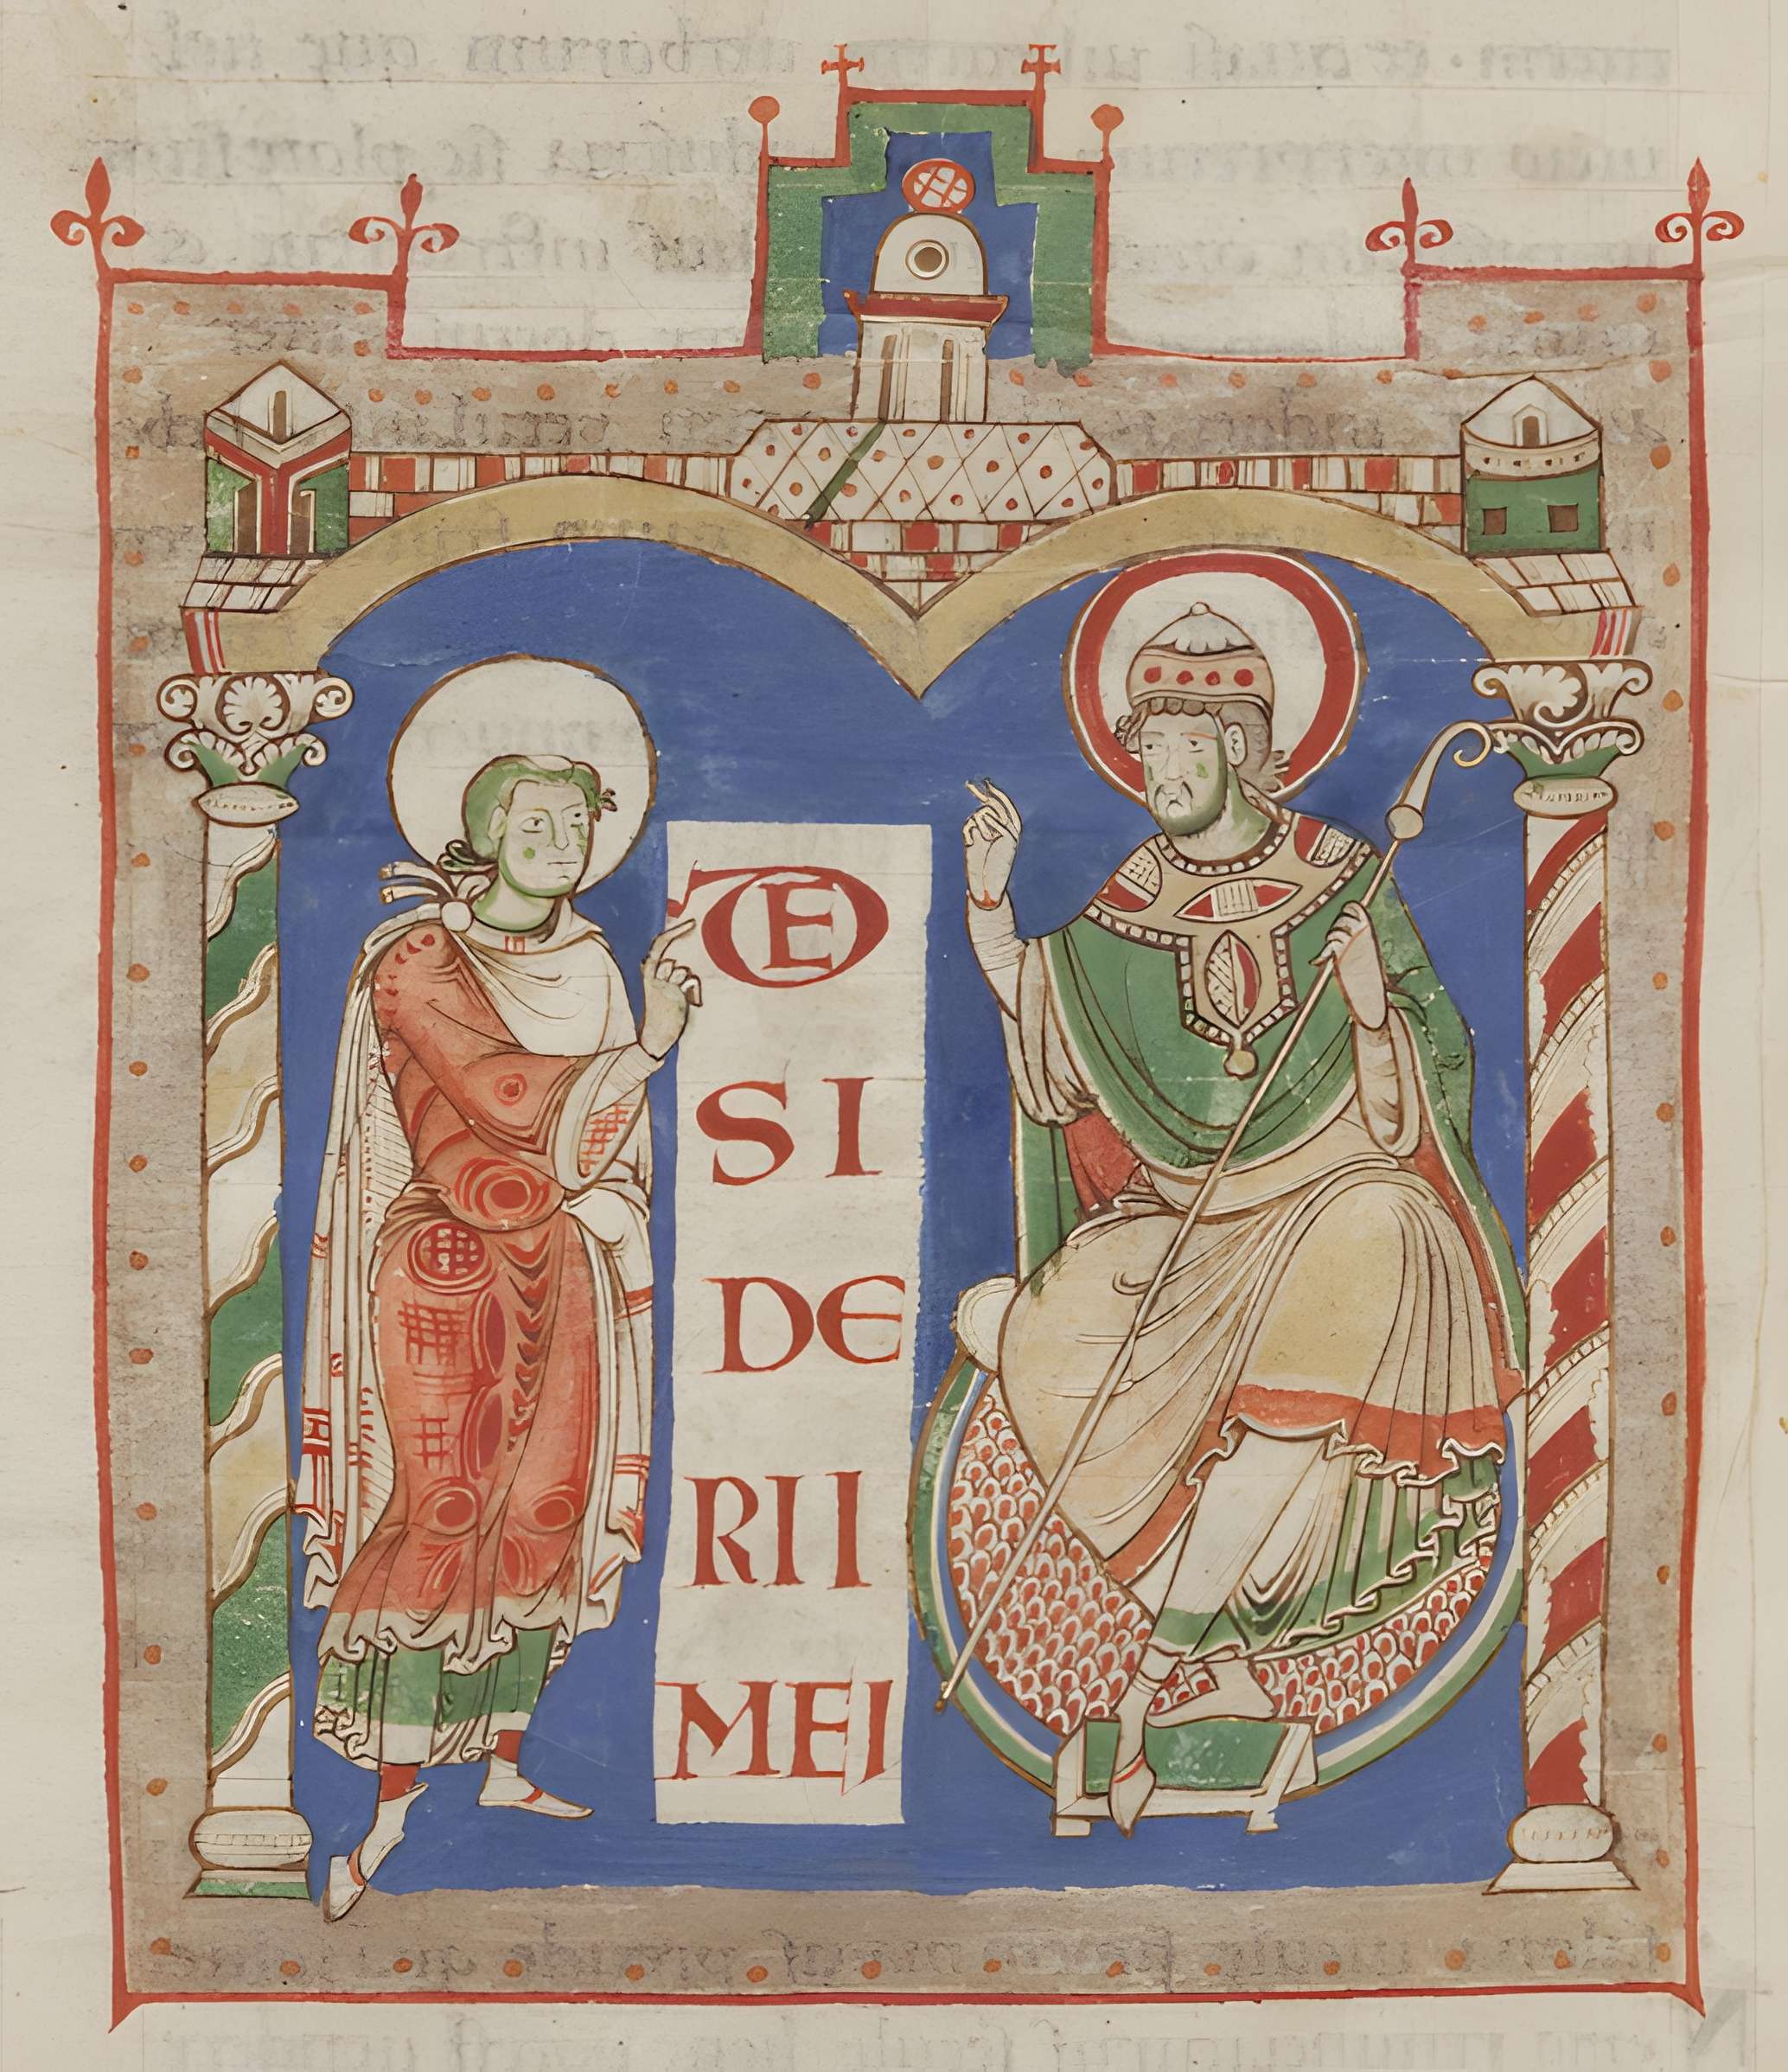 DE
SI
DE
RII
MEI